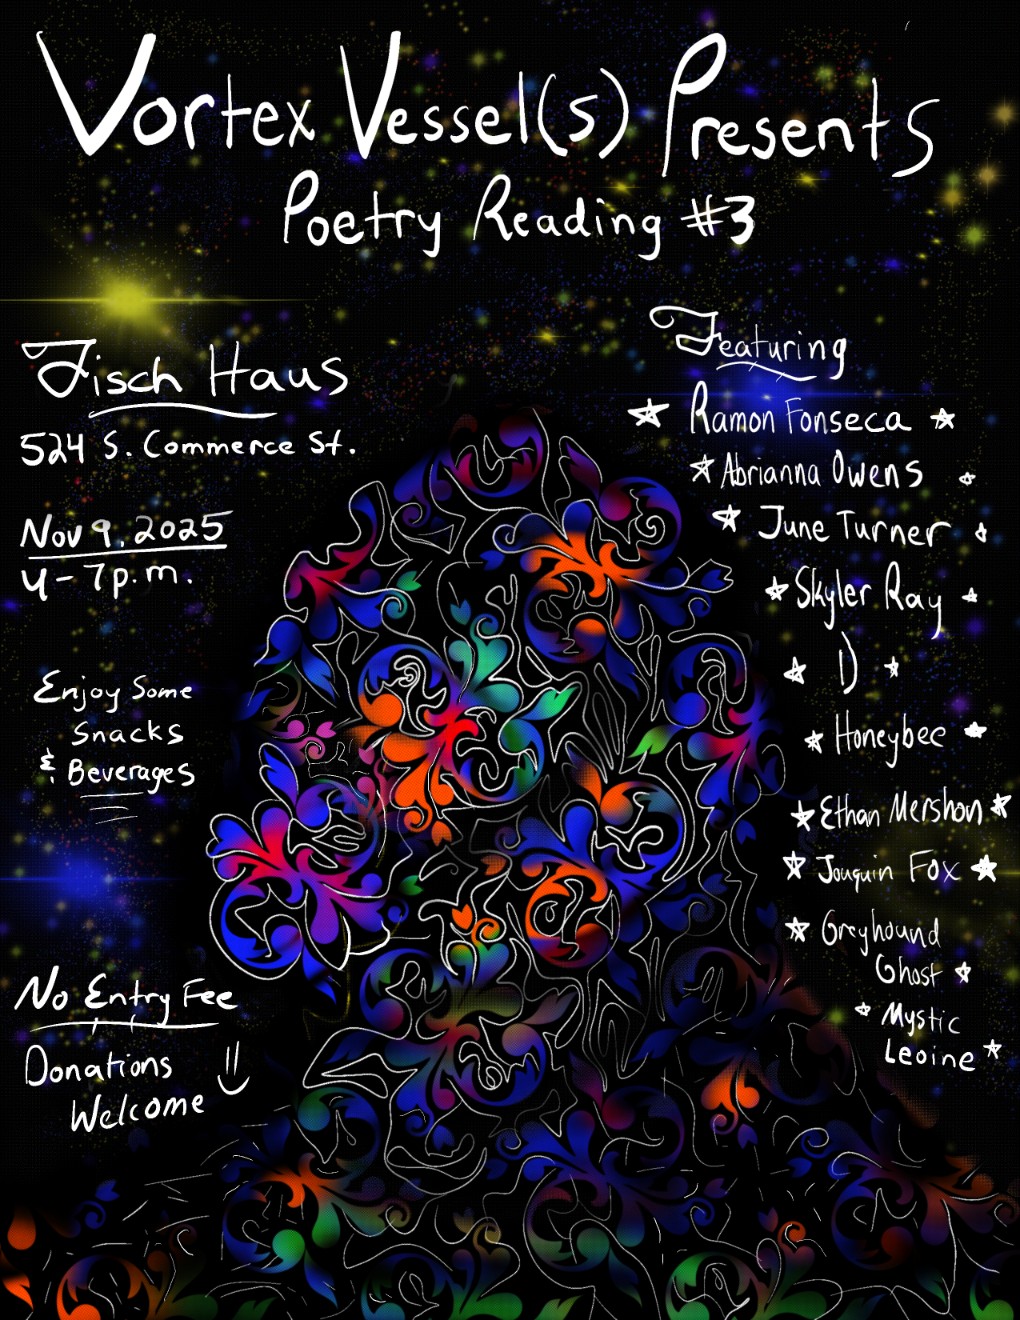 Vortex Vessel(s) Presents
Poetry Reading #3
Fisch Haus
524 S. Commerce St.
Nov 9, 2025
4-7p.m.
Enjoy Some
Snacks
& Beverages
No Entry Fee
Donations
Welcome
Featuring
Ramon Fonseca
Abrianna Owens
June Turner
Skyler Ray
D
Honeybee
Ethan Mershon
Jouquin Fox
Greyhound
Ghost
Mystic
Leoine